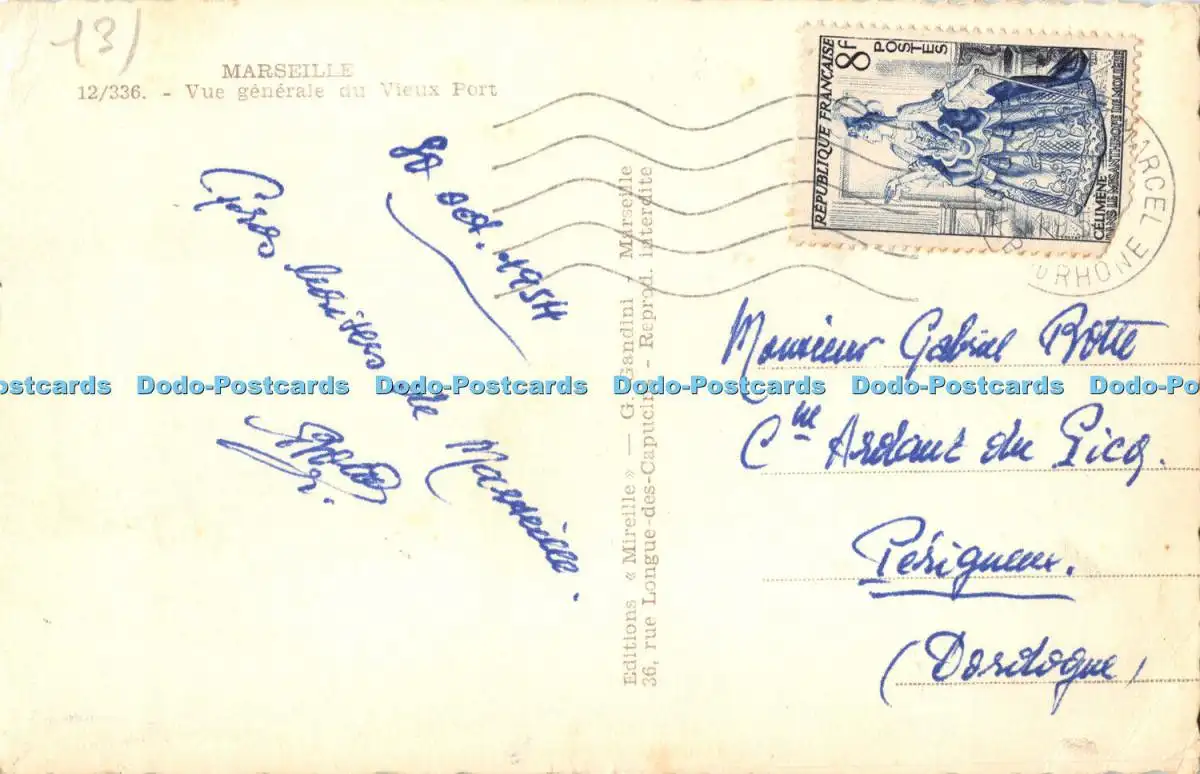 13)
MARSEILLE
12/336. - Vue générale du Vieux Port
oct. 1954
Gros baisers de Marseille.
Editions « Mireille » — G. Gandini Marseille
36, rue Longue-des-Capucins - Reprod. interdite
REPUBLIQUE FRANÇAISE
8f
POSTES
CÉLIMÈNE
DANS LE MISANTHROPE DE MOLIÈRE
MARCEL
B. DU RHONE
Monsieur Gabriel Botte
Cne Ardant du Picq.
Périgueux.
(Dordogne)
Dodo-Postcards Dodo-Postcards Dodo-Postcards Dodo-Postcards Dodo-Postcards